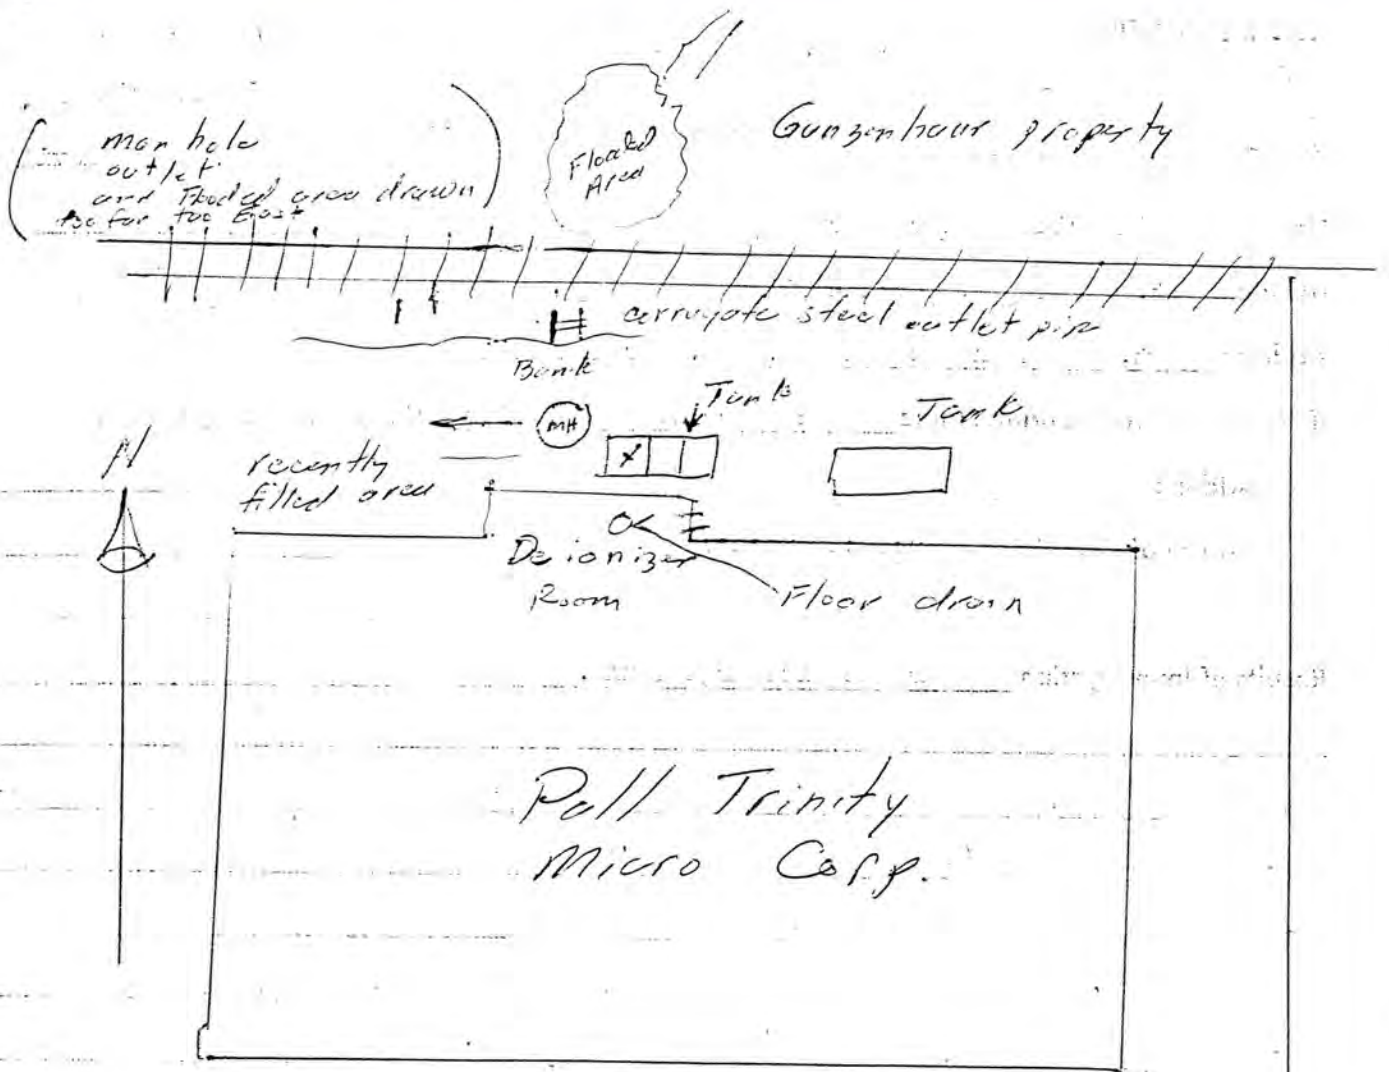 man hole
outlet
and Flooded area drawn
too far too East
Flooded
Area
Gunzenhaur property
corrugate steel outlet pipe
Bank
MH
Tank
Tank
N
recently
filled area
Deionizer
Room
Floor drain
Pall Trinity
Micro Corp.